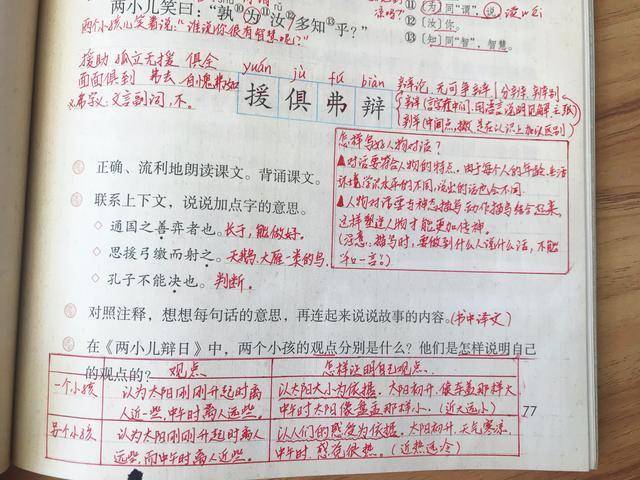 两小儿笑曰："孰为汝多知乎？"
⑪〔为〕同"谓"，说。
⑫〔汝〕你。
⑬〔知〕同"智"，智慧。
两个小孩儿笑着说："谁说你很有智慧呢？"
援助 孤立无援 俱全
面面俱到 弗去 自愧弗如
弗字义：文言副词，不。
yuán jù fú biàn
援 俱 弗 辩
辩论、无可争辩
怎样写好人物对话？
▲对话要符合人物的特点，由于每个人的年龄、生活
环境、学识水平的不同，说出的话也会不同。
▲人物对话要与神态描写、动作描写结合起来，
这样塑造人物才能更加传神。
（注意：描写时，要做到什么人说什么话，不能
千口一言。）
正确、流利地朗读课文。背诵课文。
联系上下文，说说加点字的意思。
◇ 通国之善弈者也。长于，能做好。
◇ 思援弓缴而射之。天鹅、大雁一类的鸟。
◇ 孔子不能决也。判断。
对照注释，想想每句话的意思，再连起来说说故事的内容。（书中译文）
在《两小儿辩日》中，两个小孩的观点分别是什么？他们是怎样说明自己
的观点的？
观点 怎样证明自己观点
一个小孩 认为太阳刚刚升起时离人近一些，中午时离人远些。 以太阳大小为依据。太阳初升，像车盖那样大，中午时太阳像盘盂那样小。（近大远小）
另个小孩 认为太阳刚刚升起时离人远些，而中午时离人近些。 以人们的感受为依据，太阳初升，天气寒凉，中午时，感觉很热。（近热远冷）
77